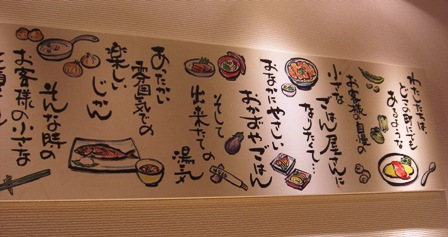 わたしたちは、
どこの町にでも
あるような
お客様の自慢の
小さな
ごはん屋さんに
なりたくて…
おなかにやさしい
おかずやごはん
そして
出来たての
湯気
あたたかい
雰囲気での
楽しい
じかん
そんな時の
お客様の小さな